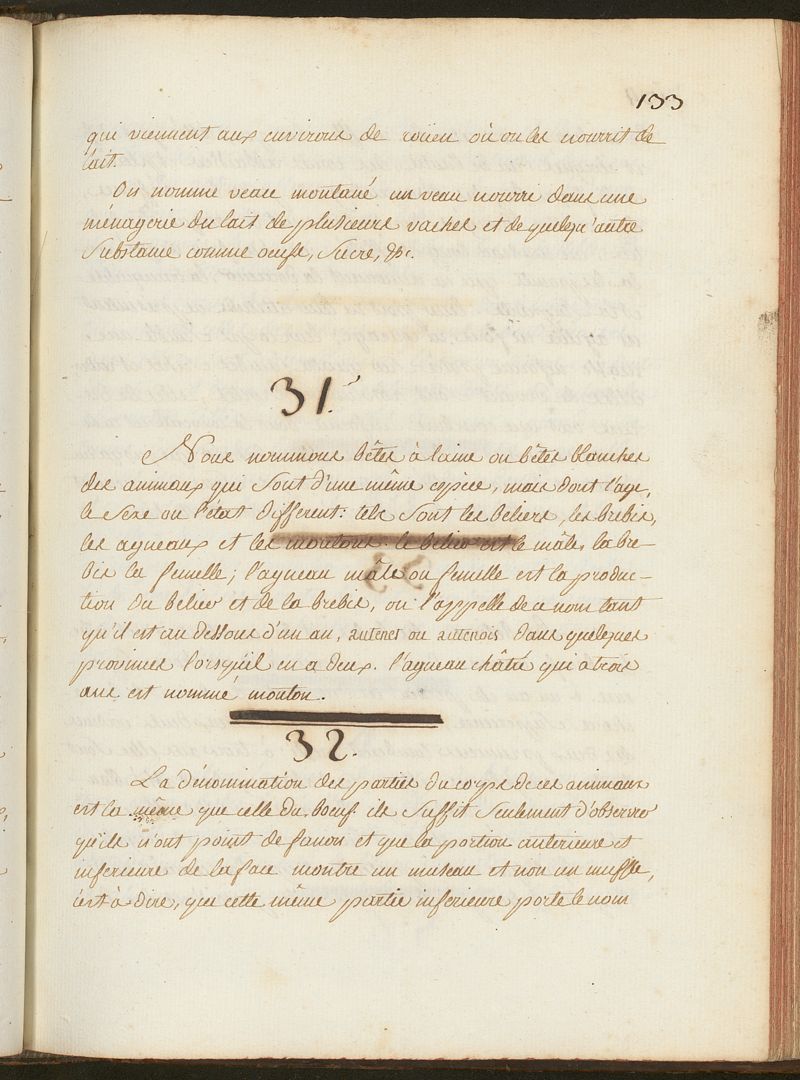 133
qui viennent aux environs de roüen où on les nourrit de
lait.
On nomme veau montané un veau nourri dans une
ménagerie du lait de plusieurs vaches et de quelqu'autre
substance comme oeufs, sucre, &c.
31.
Nous nommons bêtes à laine ou bêtes blanches
des animaux qui sont d'une même espèce, mais dont l'age,
le sexe ou l'état different: tels sont les beliers, les brebis,
les agneaux et les moutons. le belier est le mâle, la bre-
bis la femelle; l'agneau mâle ou femelle est la produc-
tion du belier et de la brebis, on l'appelle de ce nom tant
qu'il est au dessous d'un an, antenet ou antenois dans quelques
provinces lorsqu'il en a deux. l'agneau châtré qui a trois
ans est nommé mouton.
32.
La dénomination des parties du corps de ces animaux
est la même que celle du boeuf. ils suffit seulement d'observer
qu'ils n'ont point de fanon et que la portion anterieure et
inferieure de la face montre un museau et non un muffle,
c'est à dire, que cette même partie inferieure porte le nom